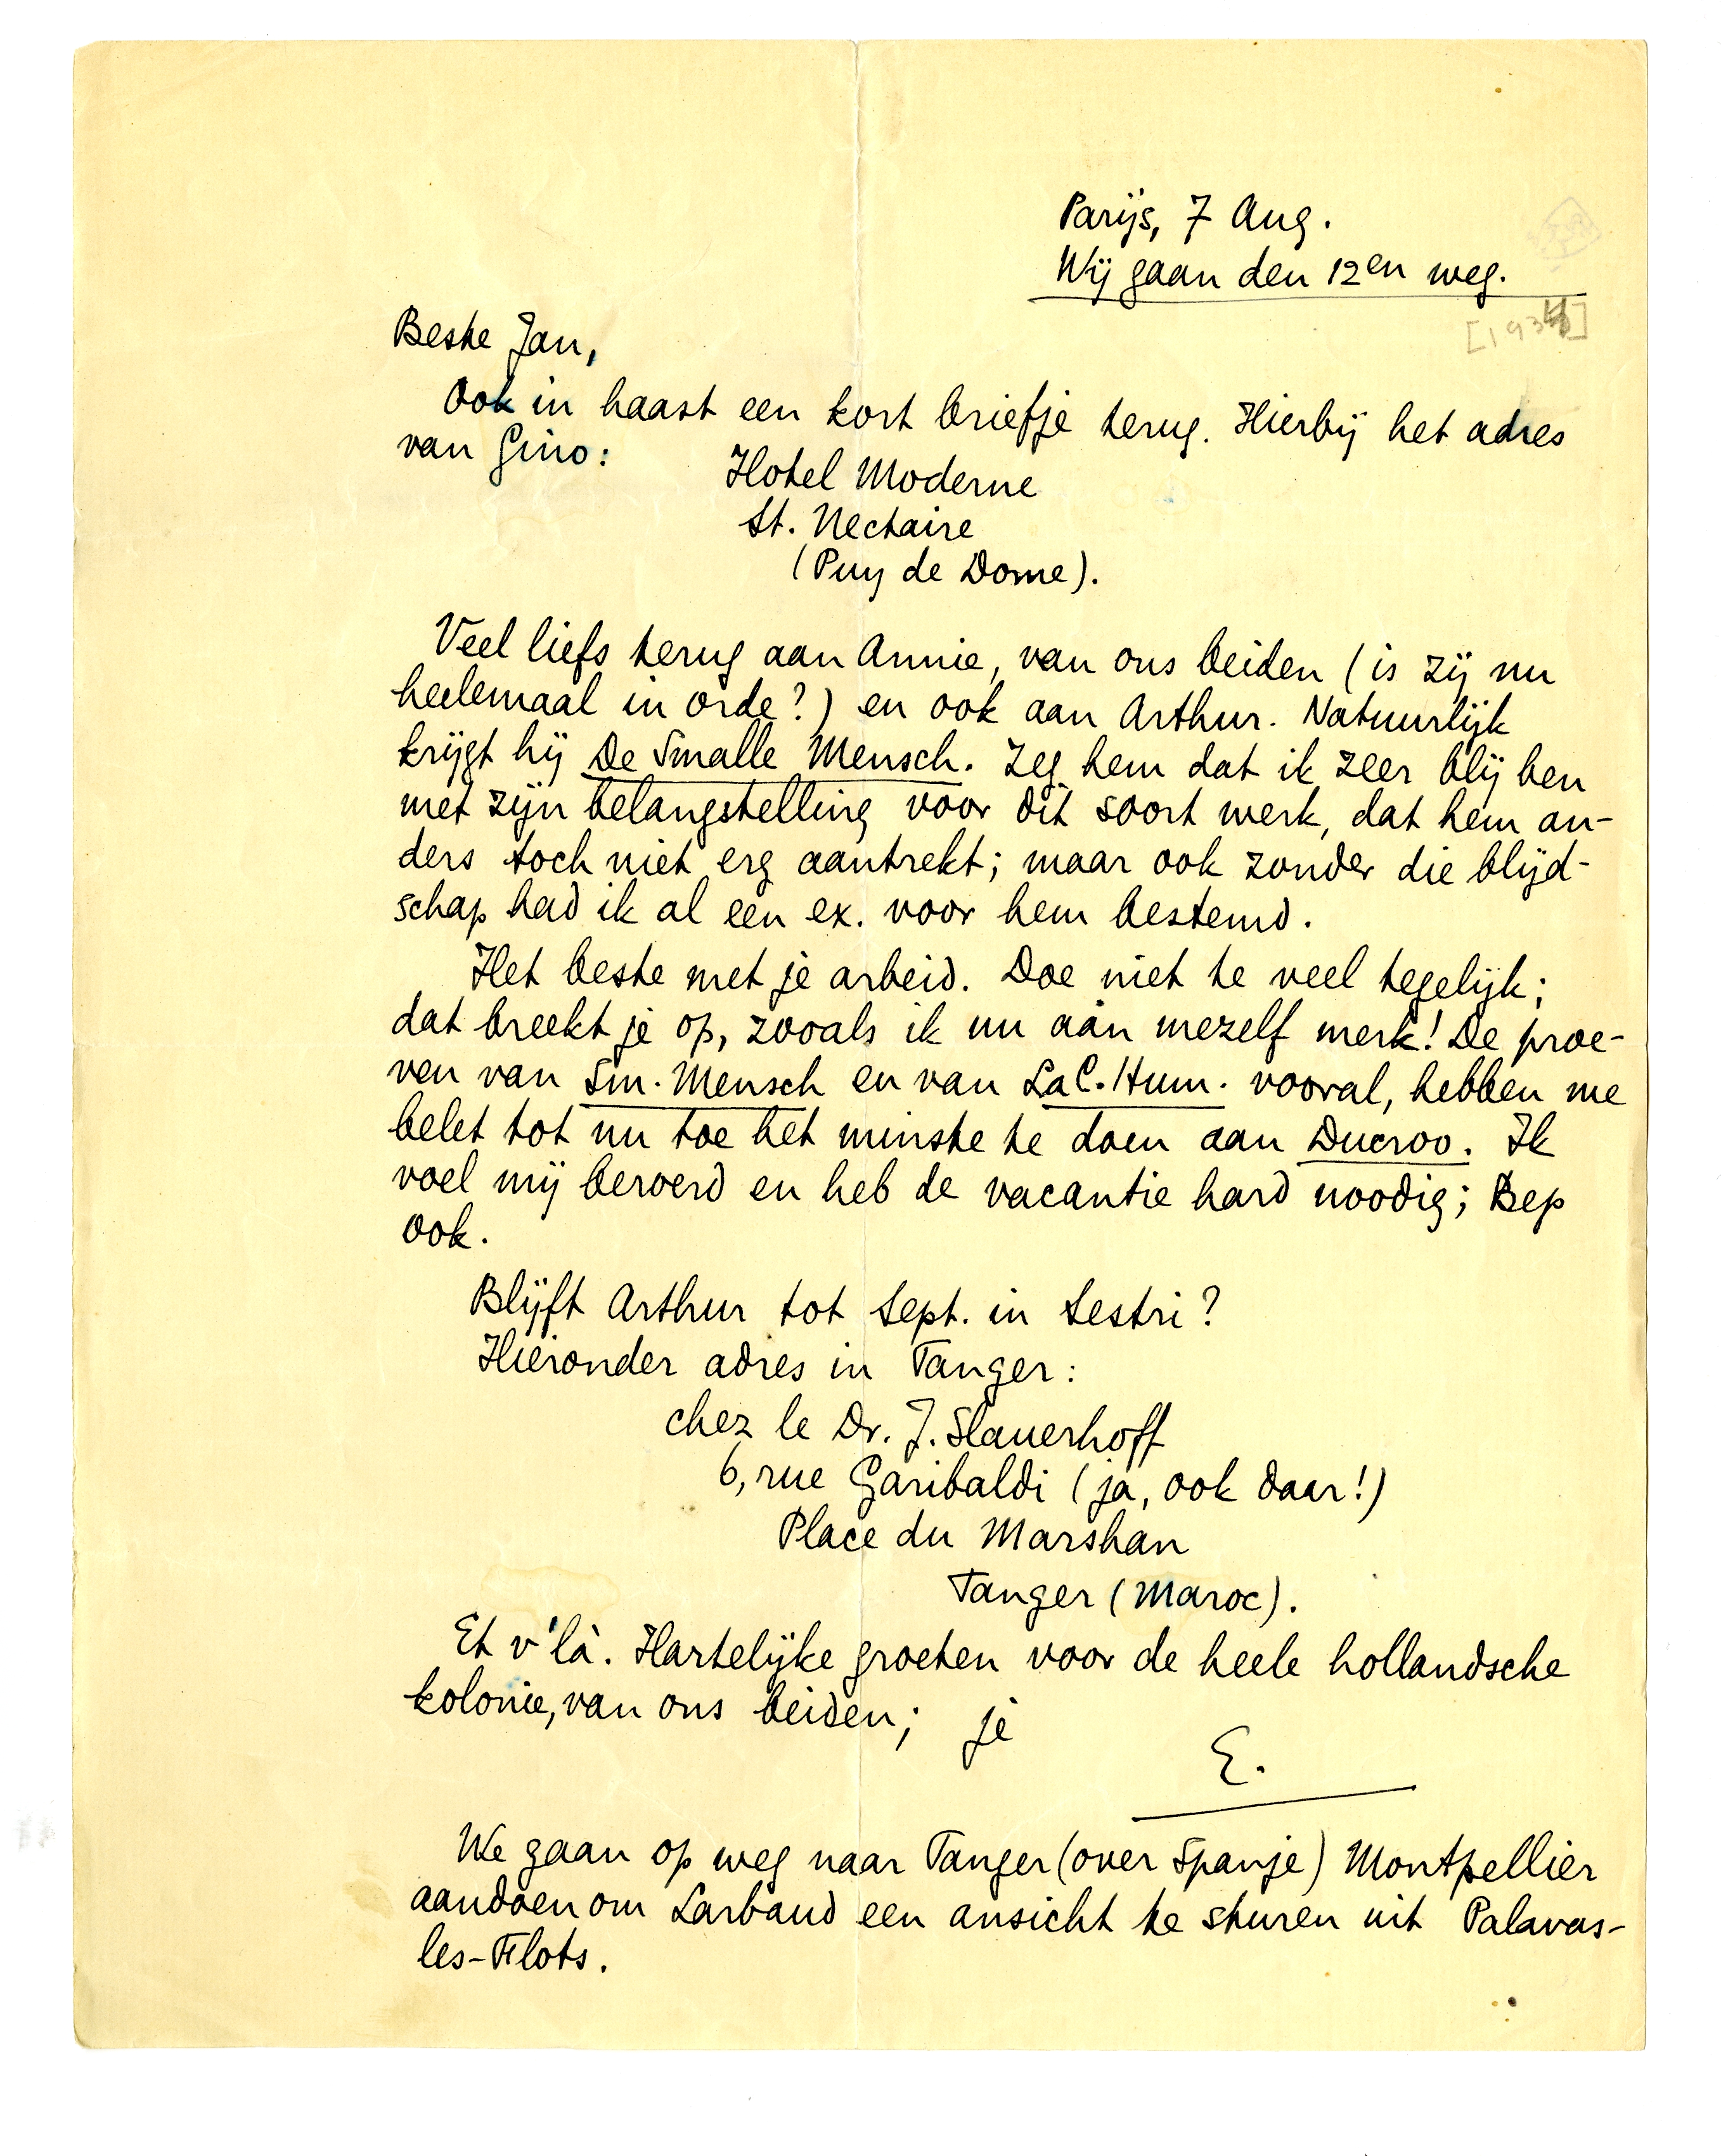 Parijs, 7 Aug.
Wij gaan den 12en weg.
[1934]
Beste Jan,
Ook in haast een kort briefje terug. Hierbij het adres
van Gino:
Hotel Moderne
St. Nectaire
(Puy de Dome).
Veel liefs terug aan Annie, van ons beiden (is zij nu
heelemaal in orde?) en ook aan Arthur. Natuurlijk
krijgt hij De Smalle Mensch. Zeg hem dat ik zeer blij ben
met zijn belangstelling voor dit soort werk, dat hem an-
ders toch niet erg aantrekt; maar ook zonder die blijd-
schap had ik al een ex. voor hem bestemd.
Het beste met je arbeid. Doe niet te veel tegelijk;
dat breekt je op, zooals ik nu aan mezelf merk! De proe-
ven van Sm. Mensch en van La C. Hum. vooral, hebben me
belet tot nu toe het minste te doen aan Ducroo. Ik
voel mij beroerd en heb de vacantie hard noodig; Bep
ook.
Blijft Arthur tot Sept. in Sestri?
Hieronder adres in Tanger:
chez le Dr. J. Slauerhoff
6, rue Garibaldi (ja, ook daar!)
Place du Marshan
Tanger (Maroc).
Et v'là. Hartelijke groeten voor de heele hollandsche
kolonie, van ons beiden; je
E.
We gaan op weg naar Tanger (over Spanje) Montpellier
aandoen om Larbaud een ansicht te sturen uit Palavas-
les-Flots.